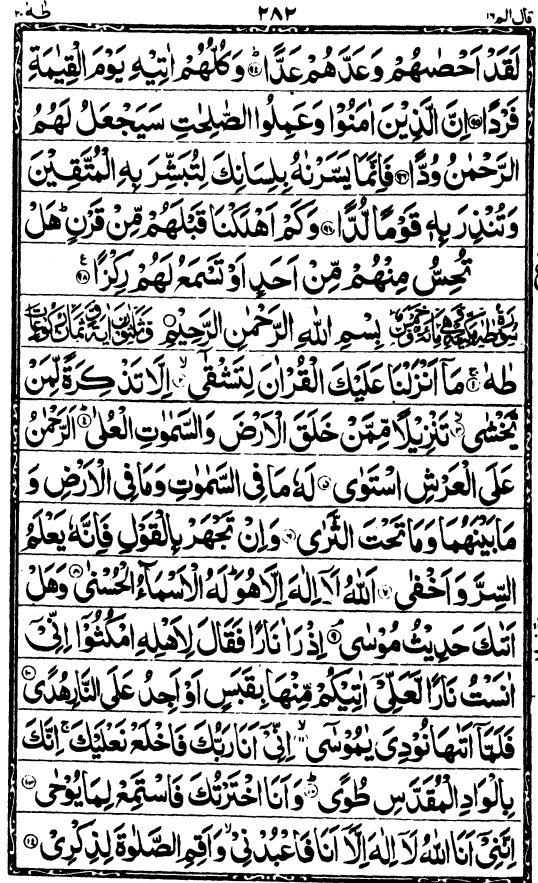 قال الم ١٦ ٢٨٢ طٰهٰ ٢٠
لَقَدْ اَحْصٰىهُمْ وَعَدَّهُمْ عَدًّا ۝٩٤ وَكُلُّهُمْ اٰتِيْهِ يَوْمَ الْقِيٰمَةِ
فَرْدًا ۝٩٥ اِنَّ الَّذِيْنَ اٰمَنُوْا وَعَمِلُوا الصّٰلِحٰتِ سَيَجْعَلُ لَهُمُ
الرَّحْمٰنُ وُدًّا ۝٩٦ فَاِنَّمَا يَسَّرْنٰهُ بِلِسَانِكَ لِتُبَشِّرَ بِهِ الْمُتَّقِيْنَ
وَتُنْذِرَ بِهٖ قَوْمًا لُّدًّا ۝٩٧ وَكَمْ اَهْلَكْنَا قَبْلَهُمْ مِّنْ قَرْنٍ ؕ هَلْ
تُحِسُّ مِنْهُمْ مِّنْ اَحَدٍ اَوْ تَسْمَعُ لَهُمْ رِكْزًا ۝٩٨
بِسْمِ اللهِ الرَّحْمٰنِ الرَّحِيْمِ
طٰهٰ ۝١ مَاۤ اَنْزَلْنَا عَلَيْكَ الْقُرْاٰنَ لِتَشْقٰۤى ۝٢ اِلَّا تَذْكِرَةً لِّمَنْ
يَّخْشٰى ۝٣ تَنْزِيْلًا مِّمَّنْ خَلَقَ الْاَرْضَ وَالسَّمٰوٰتِ الْعُلٰى ۝٤ اَلرَّحْمٰنُ
عَلَى الْعَرْشِ اسْتَوٰى ۝٥ لَهٗ مَا فِى السَّمٰوٰتِ وَمَا فِى الْاَرْضِ وَ
مَا بَيْنَهُمَا وَمَا تَحْتَ الثَّرٰى ۝٦ وَاِنْ تَجْهَرْ بِالْقَوْلِ فَاِنَّهٗ يَعْلَمُ
السِّرَّ وَاَخْفٰى ۝٧ اَللهُ لَاۤ اِلٰهَ اِلَّا هُوَ ؕ لَهُ الْاَسْمَآءُ الْحُسْنٰى ۝٨ وَهَلْ
اَتٰىكَ حَدِيْثُ مُوْسٰى ۝٩ اِذْ رَاٰ نَارًا فَقَالَ لِاَهْلِهِ امْكُثُوْۤا اِنِّىْۤ
اٰنَسْتُ نَارًا لَّعَلِّىْۤ اٰتِيْكُمْ مِّنْهَا بِقَبَسٍ اَوْ اَجِدُ عَلَى النَّارِ هُدًى ۝١٠
فَلَمَّاۤ اَتٰىهَا نُوْدِىَ يٰمُوْسٰى ۝١١ اِنِّىْۤ اَنَا رَبُّكَ فَاخْلَعْ نَعْلَيْكَ ۚ اِنَّكَ
بِالْوَادِ الْمُقَدَّسِ طُوًى ۝١٢ وَاَنَا اخْتَرْتُكَ فَاسْتَمِعْ لِمَا يُوْحٰى ۝١٣
اِنَّنِىْۤ اَنَا اللهُ لَاۤ اِلٰهَ اِلَّاۤ اَنَا فَاعْبُدْنِىْ ۙ وَاَقِمِ الصَّلٰوةَ لِذِكْرِىْ ۝١٤